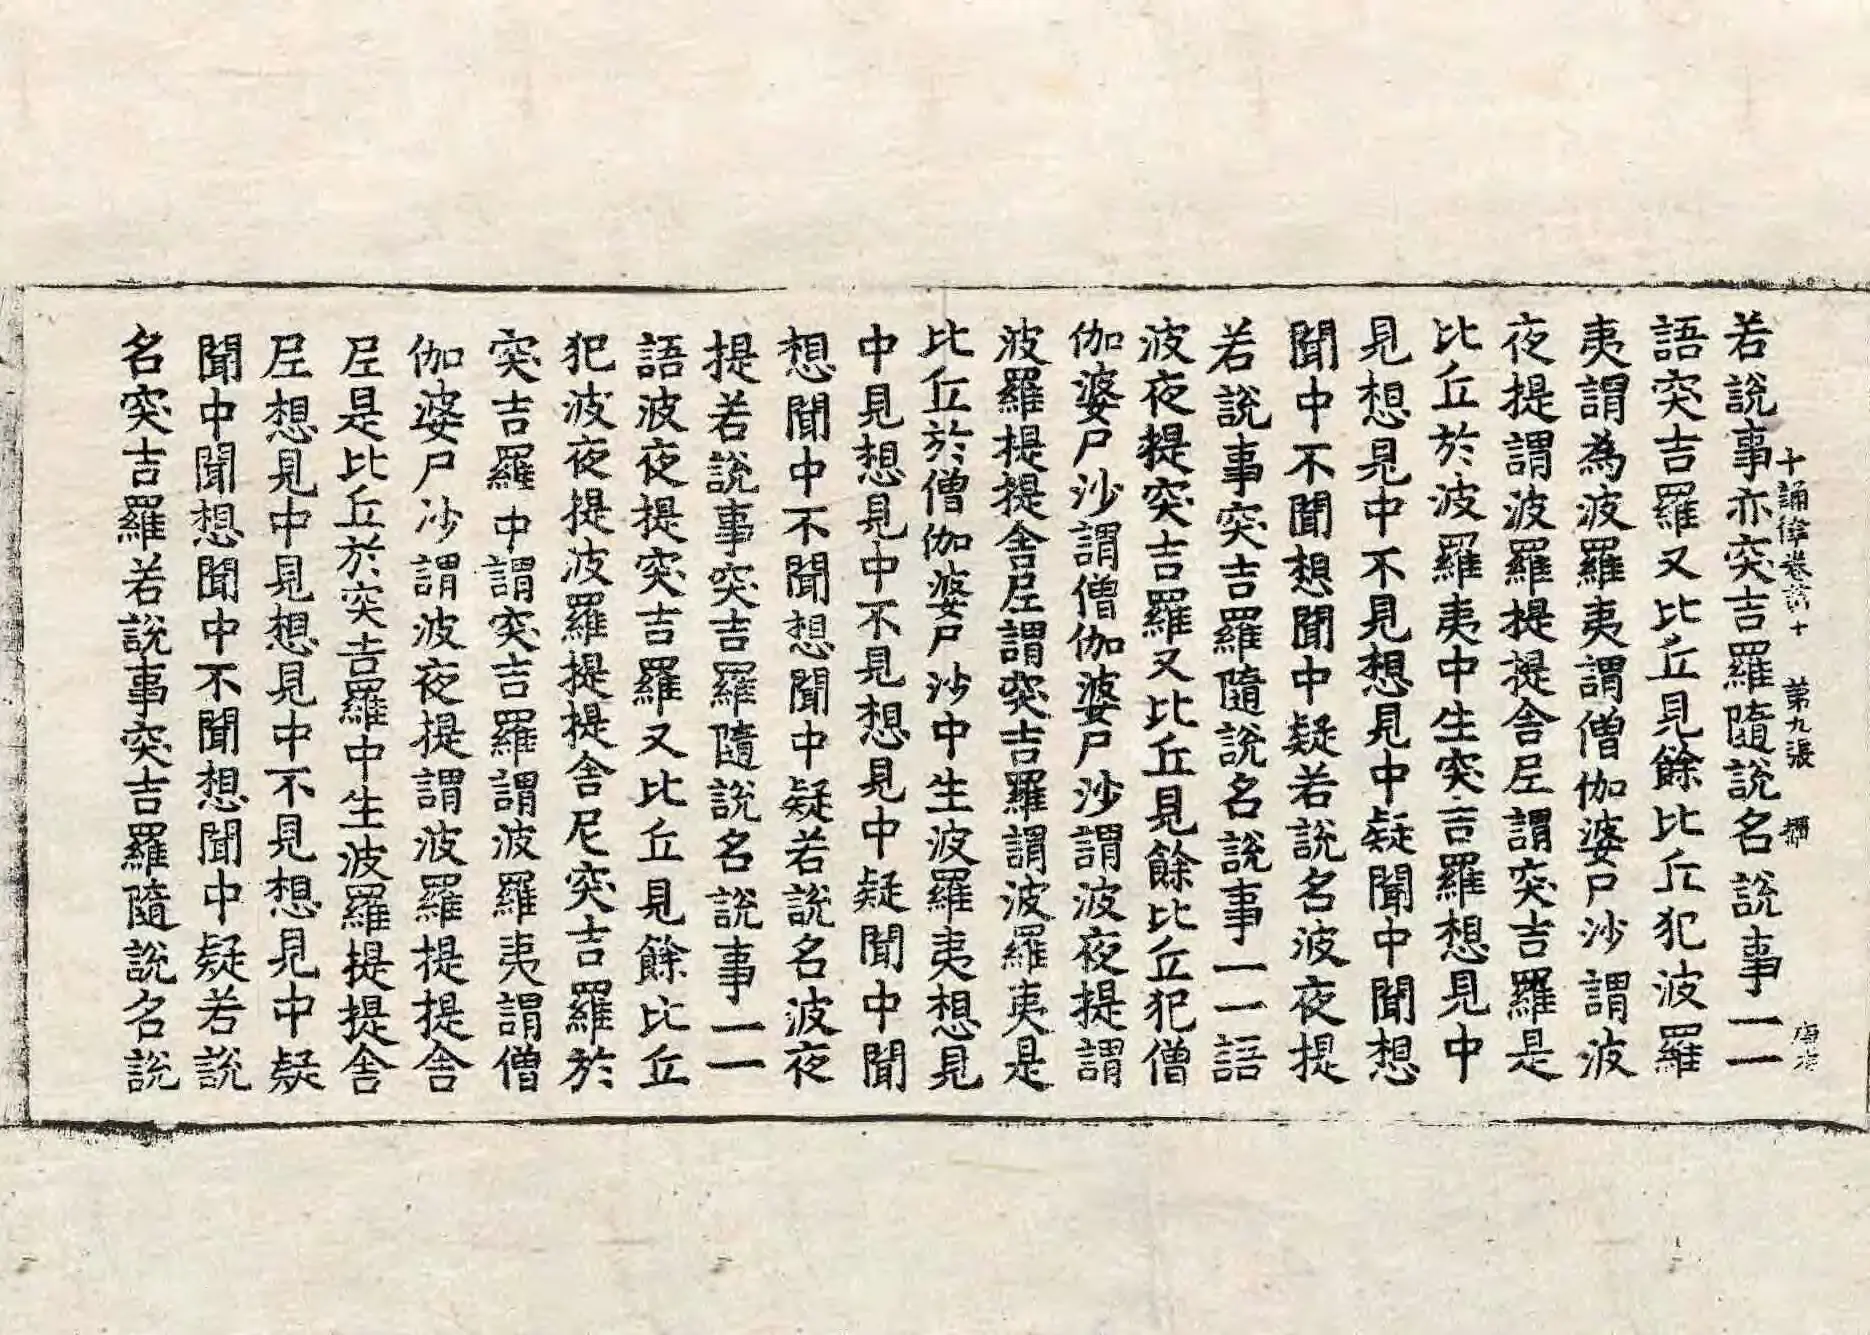 十誦律卷苐十 第九張
若說事亦突吉羅隨說名說事一一
語突吉羅又比丘見餘比丘犯波羅
夷謂為波羅夷謂僧伽婆尸沙謂波
夜提謂波羅提提舍尼謂突吉羅是
比丘於波羅夷中生突吉羅想見中
見想見中不見想見中疑聞中聞想
聞中不聞想聞中疑若說名波夜提
若說事突吉羅隨說名說事一一語
波夜提突吉羅又比丘見餘比丘犯僧
伽婆尸沙謂僧伽婆尸沙謂波夜提謂
波羅提提舍尼謂突吉羅謂波羅夷是
比丘於僧伽婆尸沙中生波羅夷想見
中見想見中不見想見中疑聞中聞
想聞中不聞想聞中疑若說名波夜
提若說事突吉羅隨說名說事一一
語波夜提突吉羅又比丘見餘比丘
犯波夜提波羅提提舍尼突吉羅於
突吉羅中謂突吉羅謂波羅夷謂僧
伽婆尸沙謂波夜提謂波羅提提舍
尼是比丘於突吉羅中生波羅提提舍
尼想見中見想見中不見想見中疑
聞中聞想聞中不聞想聞中疑若說
名突吉羅若說事突吉羅隨說名說